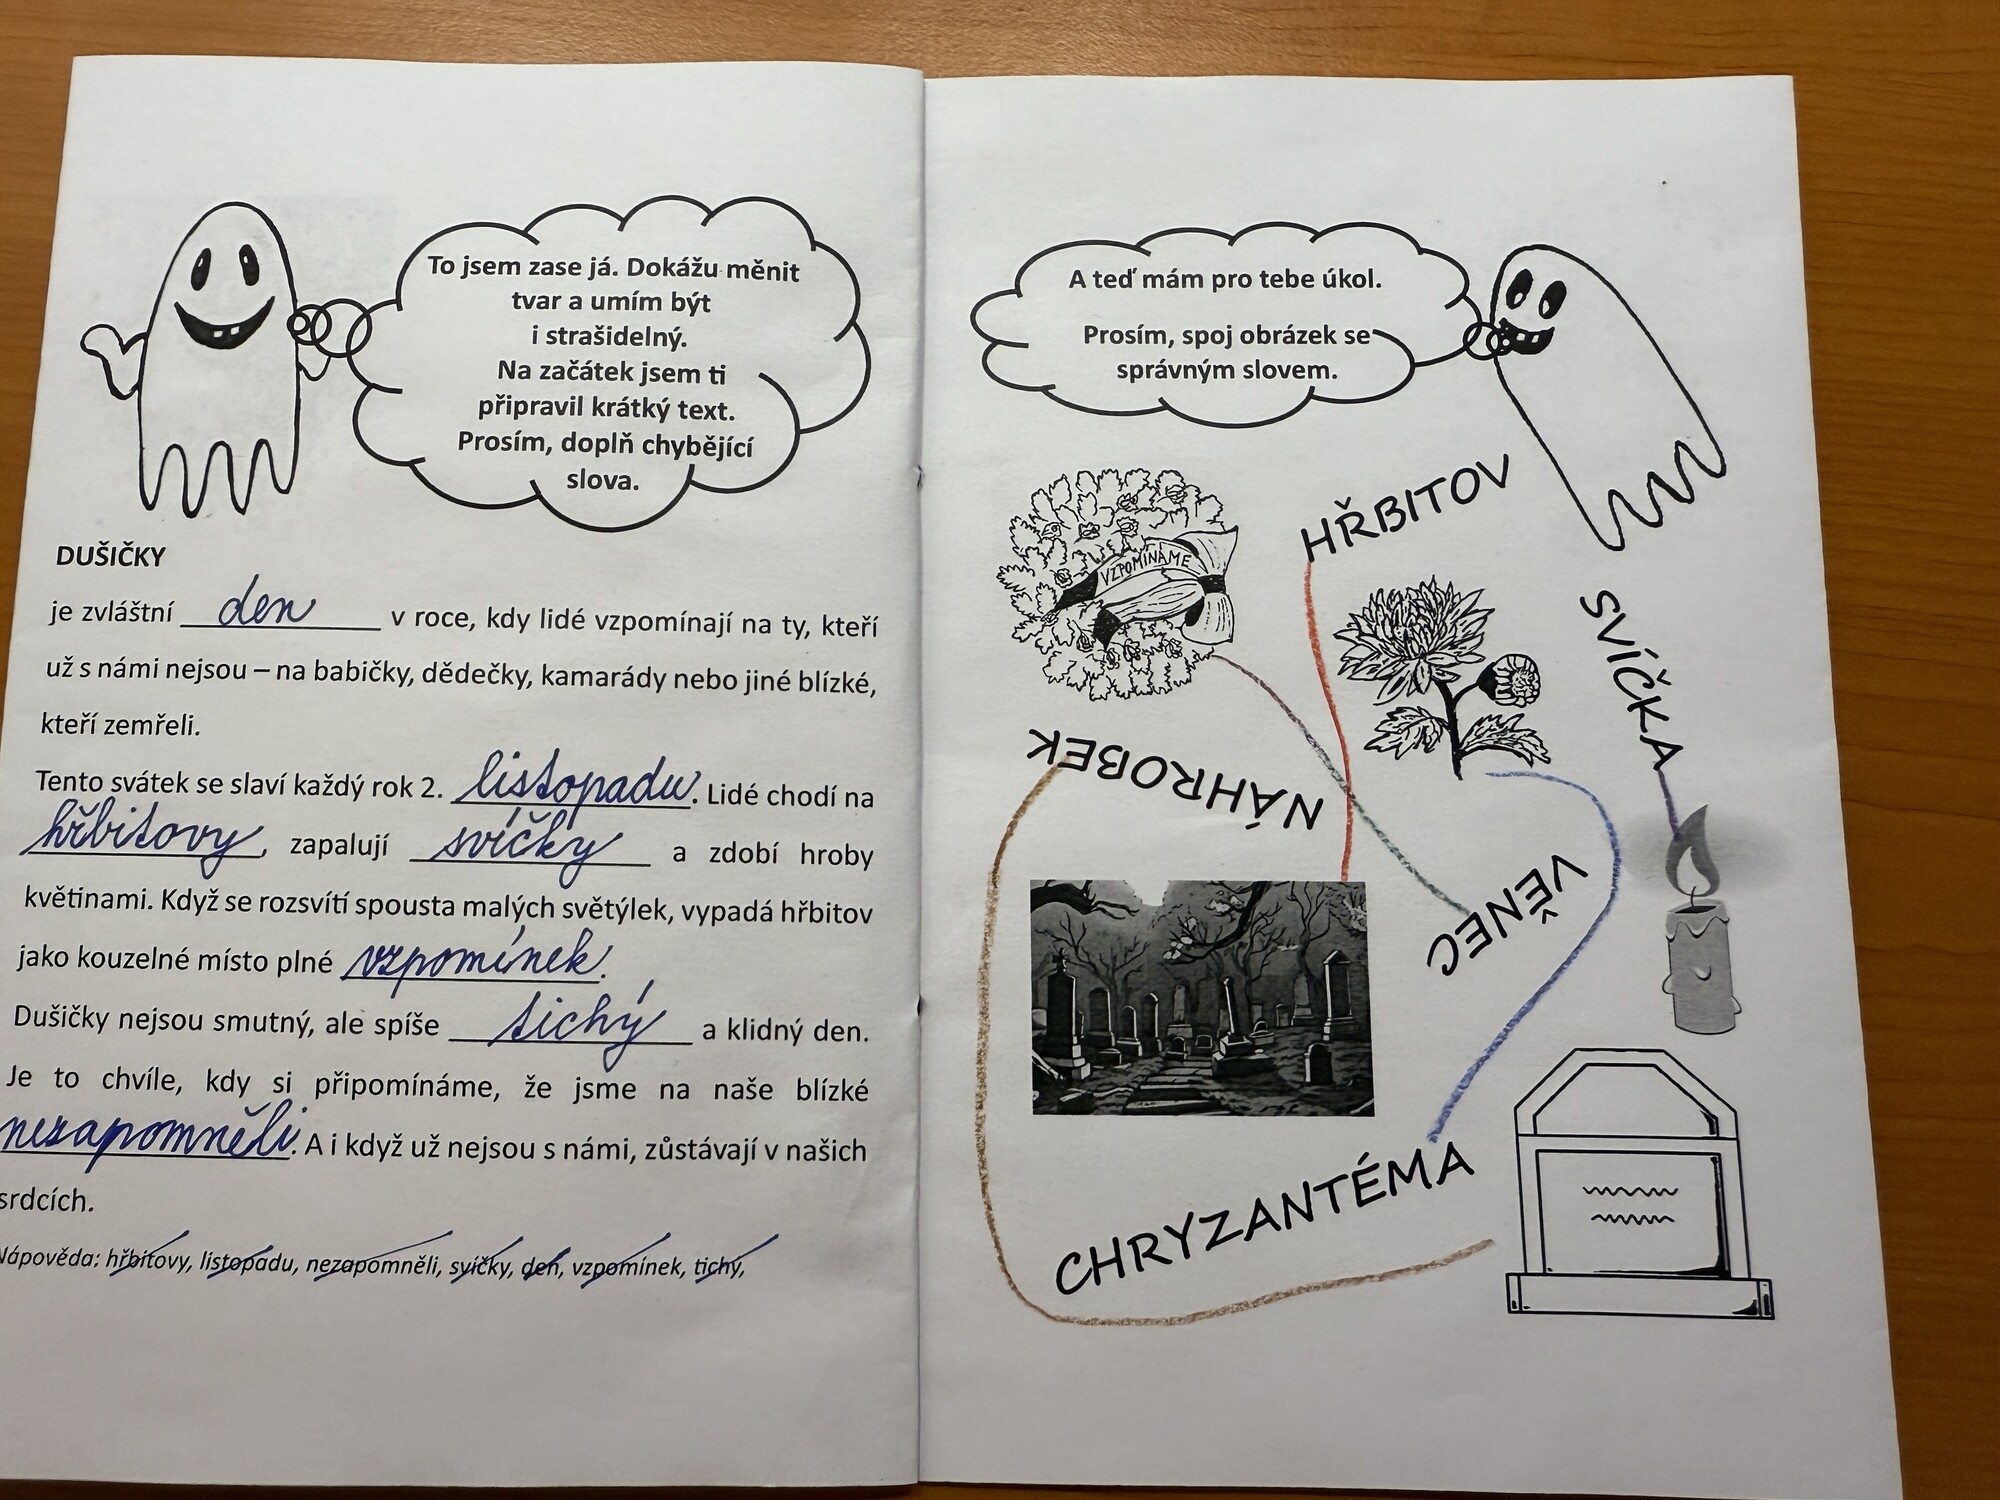 To jsem zase já. Dokážu měnit
tvar a umím být
i strašidelný.
Na začátek jsem ti
připravil krátký text.
Prosím, doplň chybějící
slova.
DUŠIČKY
je zvláštní den v roce, kdy lidé vzpomínají na ty, kteří
už s námi nejsou – na babičky, dědečky, kamarády nebo jiné blízké,
kteří zemřeli.
Tento svátek se slaví každý rok 2. listopadu. Lidé chodí na
hřbitovy, zapalují svíčky a zdobí hroby
květinami. Když se rozsvítí spousta malých světýlek, vypadá hřbitov
jako kouzelné místo plné vzpomínek.
Dušičky nejsou smutný, ale spíše tichý a klidný den.
Je to chvíle, kdy si připomínáme, že jsme na naše blízké
nezapomněli. A i když už nejsou s námi, zůstávají v našich
srdcích.
Nápověda: hřbitovy, listopadu, nezapomněli, svíčky, den, vzpomínek, tichý,
A teď mám pro tebe úkol.
Prosím, spoj obrázek se
správným slovem.
HŘBITOV
VZPOMÍNÁME
SVÍČKA
NÁHROBEK
VĚNEC
CHRYZANTÉMA